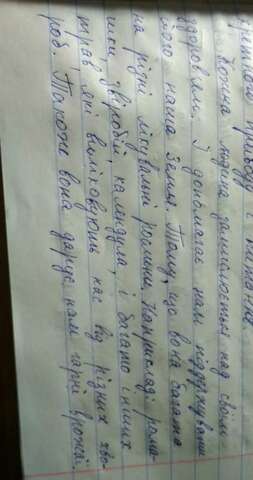 приводу і питання
Кожна людина замислюється над своїм
здоровям. І допомагає нам піддержувати
його наша Земля. Тому, що вона багата
на різди лікувальні рослини. Наприклад: рома-
шки, звіробій, календула, і багато інших
трав, які виліковують нас від різних хво-
роб. Також вона дарує нам гарні врожаї.